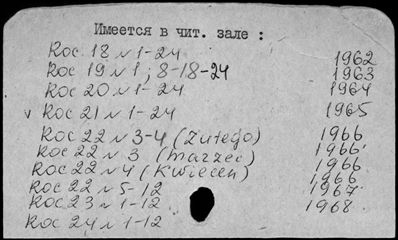 Имеется в чит. зале :
Roc 18 N 1-24 1962
Roc 19 N 1; 8-18-24 1963
Roc 20 N 1-24 1964
v Roc 21 N 1-24 1965
Roc 22 N 3-4 (Lutego) 1966
Roc 22 N 3 (marzec) 1966
Roc 22 N 4 (Kwiecen) 1966
Roc 22 N 5-12 1966
Roc 23 N 1-12 1967
Roc 24 N 1-12 1968